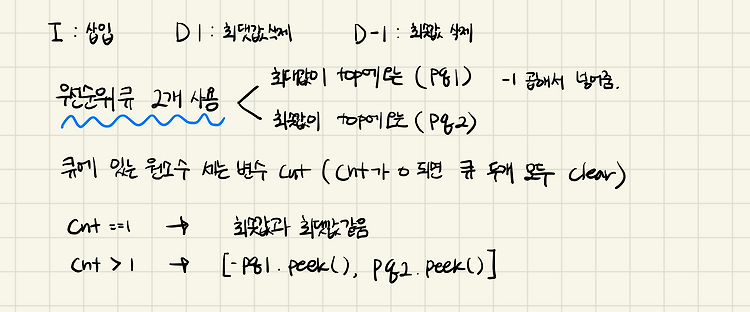 I : 삽입 D1 : 최댓값 삭제 D-1 : 최솟값 삭제
우선순위 큐 2개 사용
최대값이 top에 오는 (pq1) -1 곱해서 넣어줌.
최솟값이 top에 오는 (pq2)
큐에 있는 원소수 세는 변수 cnt (cnt가 0 되면 큐 두개 모두 clear)
cnt ==1 → 최솟값과 최댓값 같음
cnt > 1 → [-pq1.peek(), pq2.peek()]